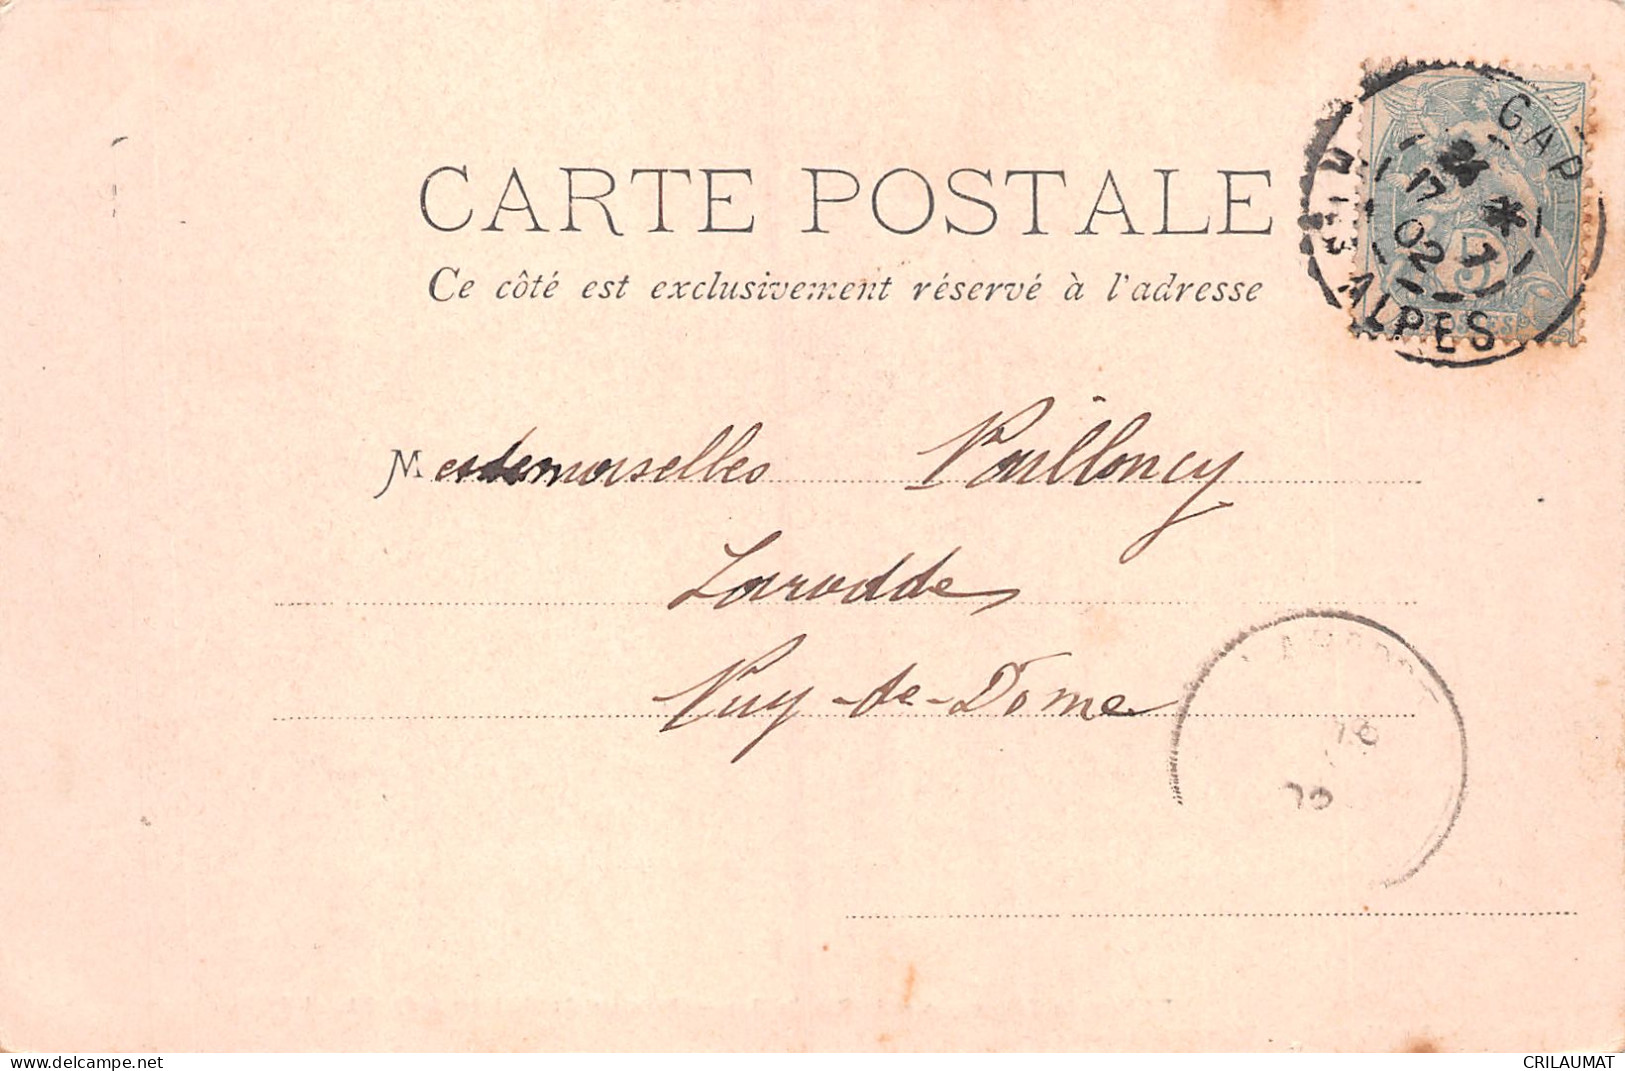 CARTE POSTALE
Ce côté est exclusivement réservé à l'adresse
GAP
17
02
ALPES
5
POSTES
Mesdemoiselles Pailloncy
Larodde
Puy-de-Dome
www.delcampe.net
CRILAUMAT